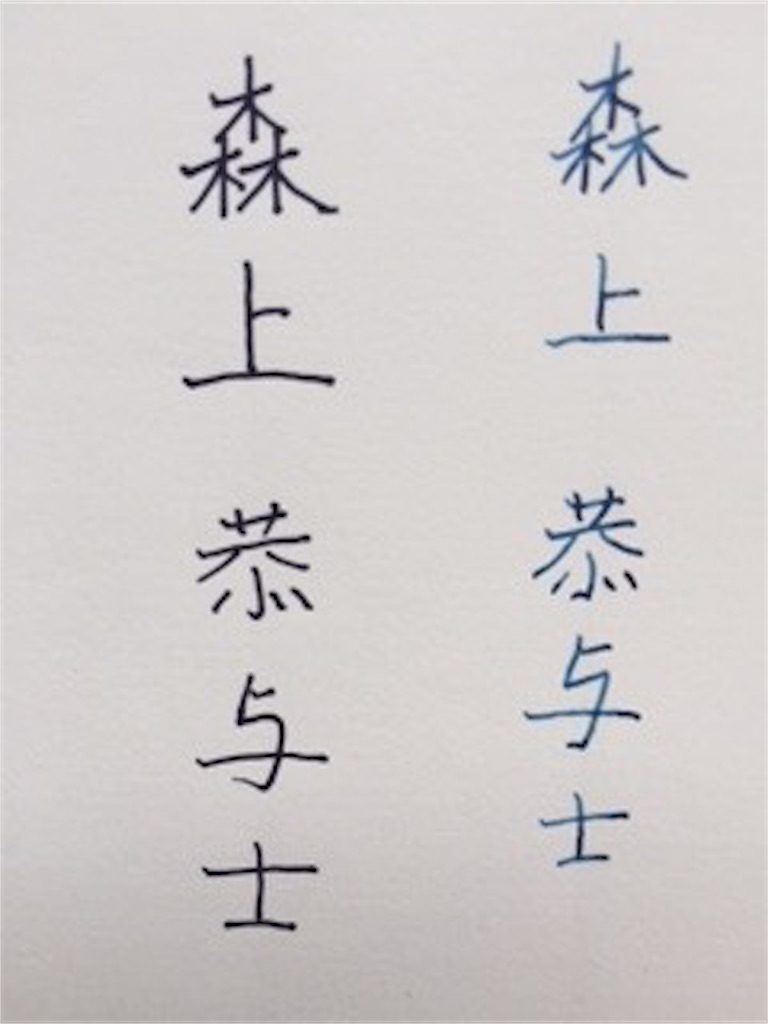 森上恭与士
森上恭与士